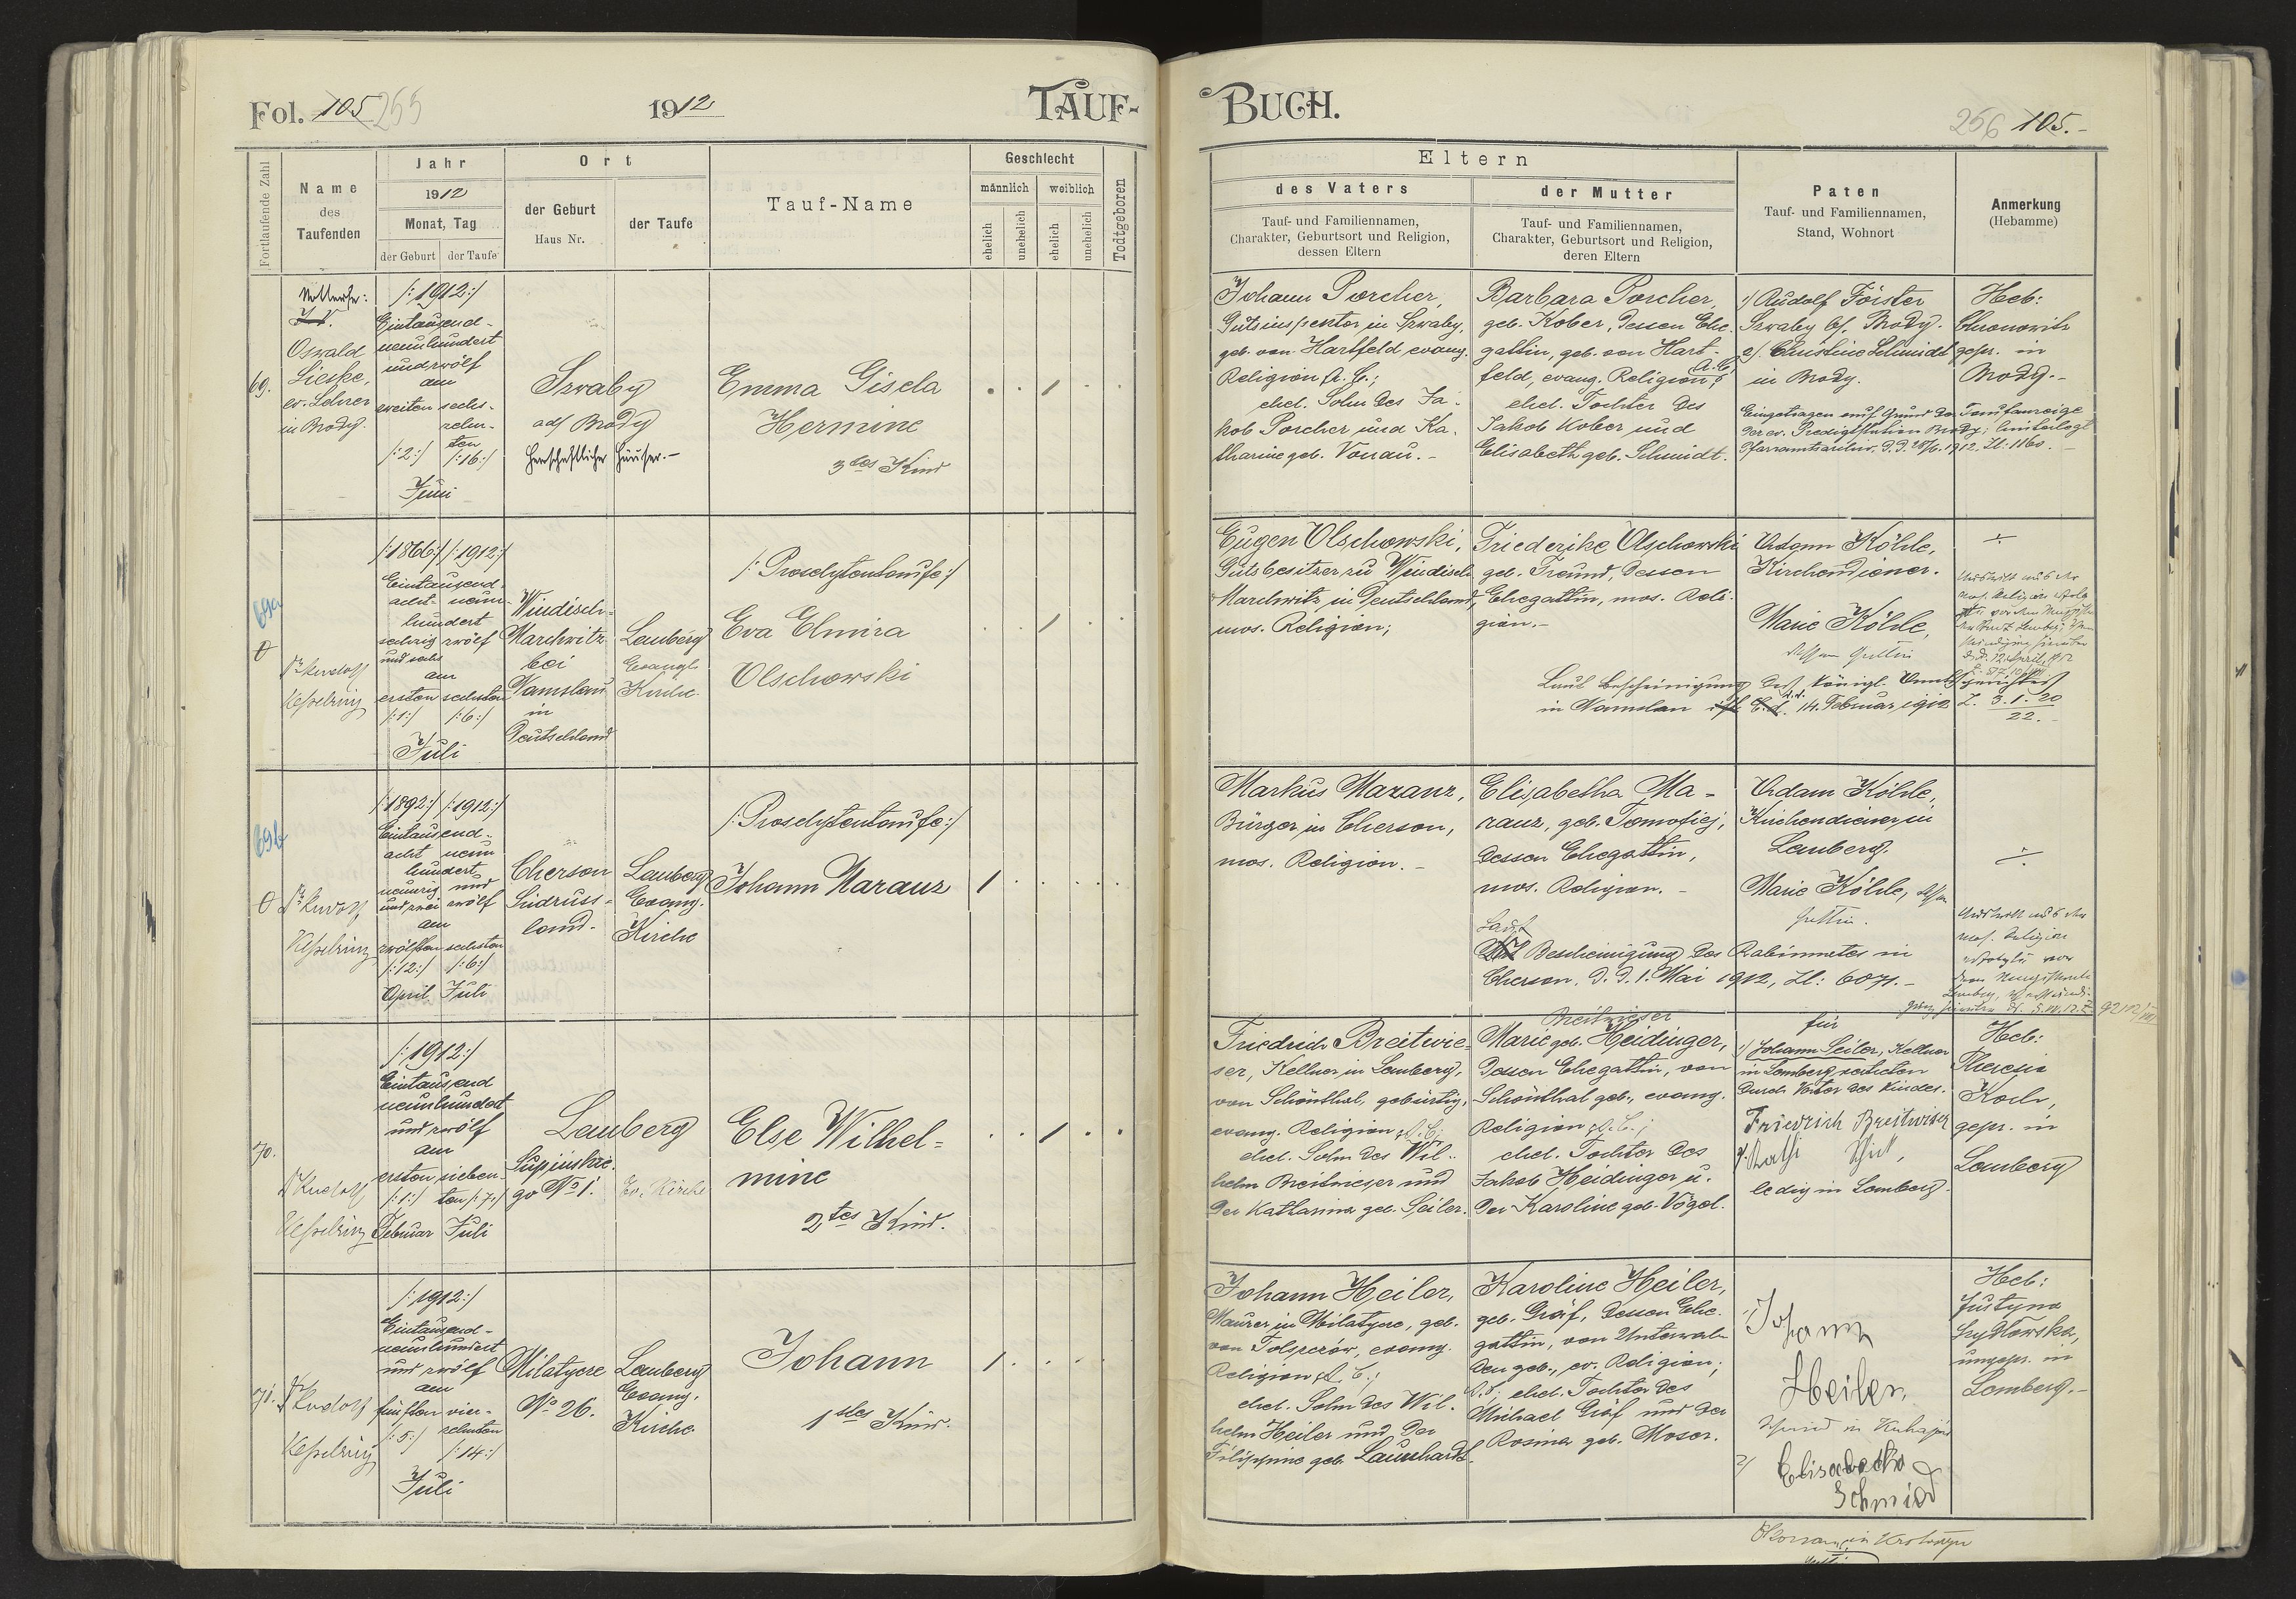 Fol. 105 255
1912
TAUF-
Fortlaufende Zahl
Name
des
Taufenden
Jahr
1912
Monat, Tag
der Geburt
der Taufe
Ort
der Geburt
Haus Nr.
der Taufe
Tauf-Name
Geschlecht
männlich
weiblich
ehelich
unehelich
ehelich
unehelich
Todtgeboren
69.
Oswald
Lieske,
ev. Lehrer
in Brody.
/:1912:/
Eintausend-
neunhundert
undzwölf
am
zweiten sechs-
zehn-
ten
/:2:/ /:16:/
Juni
Szwaby
ad/ Brody
Herrschaftlicher Häuser.-
Emma Gisela
Hermine
3tes Kind
69a
Dr Rudolf
Kesselring
/:1866:/ /:1912:/
Eintausend-
acht- neun-
hundert
sechzig zwölf
und sechs
am
ersten sechsten
/:1:/ /:6:/
Juli
Windisch-
Marchwitz
bei
Namslau
in
Deutschland
Lemberg
Evangl.
Kirche
/:Proselytentaufe:/
Eva Elmira
Olschowski
69b
Dr Rudolf
Kesselring
/:1892:/ /:1912:/
Eintausend-
acht neun
hundert
neunzig und
und zwei zwölf
am
zwölften sechsten
/:12:/ /:6:/
April Juli
Cherson
Südruss-
land.
Lemberg
Evang.
Kirche
/:Proselytentaufe:/
Johann Maranz
70.
Dr Rudolf
Kesselring
/:1912:/
Eintausend
neunhundert
und zwölf
am
ersten sieben-
/:1:/ ten /:7:/
Februar Juli
Lemberg
Supinskie-
go No 1.
Ev. Kirche
Else Wilhel-
mine
2tes Kind.
71.
Dr Rudolf
Kesselring
/:1912:/
Eintausend-
neunhundert
und zwölf
am
fünften vier-
/:5:/ zehnten
/:14:/
Juli
Milatycze
No 26.
Lemberg
Evang.
Kirche
Johann
1stes Kind.
BUCH.
256 105.-
Eltern
des Vaters
Tauf- und Familiennamen,
Charakter, Geburtsort und Religion,
dessen Eltern
der Mutter
Tauf- und Familiennamen,
Charakter, Geburtsort und Religion,
deren Eltern
Paten
Tauf- und Familiennamen,
Stand, Wohnort
Anmerkung
(Hebamme)
Johann Porcher,
Gutsinspektor in Szwaby,
geb. von Hartfeld evang.
Religion A. C.;
ehel. Sohn des Ja-
kob Porcher und Ka-
tharine geb. Vonau.-
Barbara Porcher,
geb. Kober, dessen Ehe-
gattin, geb. von Hart-
feld, evang. Religion A. C.;
ehel. Tochter des
Jakob Kober und
Elisabeth geb. Schmidt.
1/ Rudolf Förster
Szwaby b/. Brody.
2/. Christine Schmidt
in Brody.
Eingetragen auf Grund der Taufanzeige
der ev. Predigtstation Brody; hinterlegt
Pfarramtsarchiv. d.d. 1912. Zl: 1160.
Heb:
gepr. in
Brody.-
Eugen Olschowski,
Gutsbesitzer zu Windisch
Marchwitz in Deutschland,
mos. Religion;
Friederike Olschowski
geb. Freund, dessen
Ehegattin, mos. Reli-
gion.-
Adam Köhle,
Kirchendiener.
Marie Köhle,
dessen Gattin
Laut Bescheinigung des königl. Amtsgerichtes
in Namslau d.d. 14. Februar 1912 Z. 3. 1. 20
22.
Austritt aus der
mos. Religion
d.d. 12 April 1912
Markus Maranz,
Bürger in Cherson,
mos. Religion.-
Elisabetha Ma-
ranz, geb. Tomofiej,
dessen Ehegattin,
mos. Religion.-
Adam Köhle,
Kirchendiener in
Lemberg.
Marie Köhle, dessen
Gattin.
Laut
Bescheinigung des Rabinnates in
Cherson, d.d. 1. Mai 1912, Zl: 6071.-
Austritt aus der
mos. Religion
Friedrich Breitwie-
ser, Kellner in Lemberg,
von Schönthal, gebürtig,
evang. Religion A. C.;
ehel. Sohn des Wil-
helm Breitwieser und
der Katharina geb. Seiler.
Breitwieser
Marie geb. Heidinger,
dessen Ehegattin, von
Schönthal geb., evang.
Religion A. C.;
ehel. Tochter des
Jakob Heidinger u.
der Karoline geb. Vögel.
für
1/ Johann Seiler, Kellner
in Lemberg vertreten
durch Vater des Kindes.
Friedrich Breitwieser
ledig in Lemberg.
Heb:
Theresia
Koch,
gepr. in
Lemberg
Johann Heiler,
Maurer in Milatycze, geb.
von Tolszczów, evang.
Religion A. C.;
ehel. Sohn des Wil-
helm Heiler und der
Filippine geb. Launhardt.
Karoline Heiler,
geb. Gräf, dessen Ehe-
gattin, von Unterwal-
den geb., ev. Religion;
A. C.; ehel. Tochter des
Michael Gräf und der
Rosina geb. Moser.
1/ Johann
Heiler
2/ Elisabetha
Schmied
Heb:
Justyna
Szydłowska,
ungepr. in
Lemberg.-